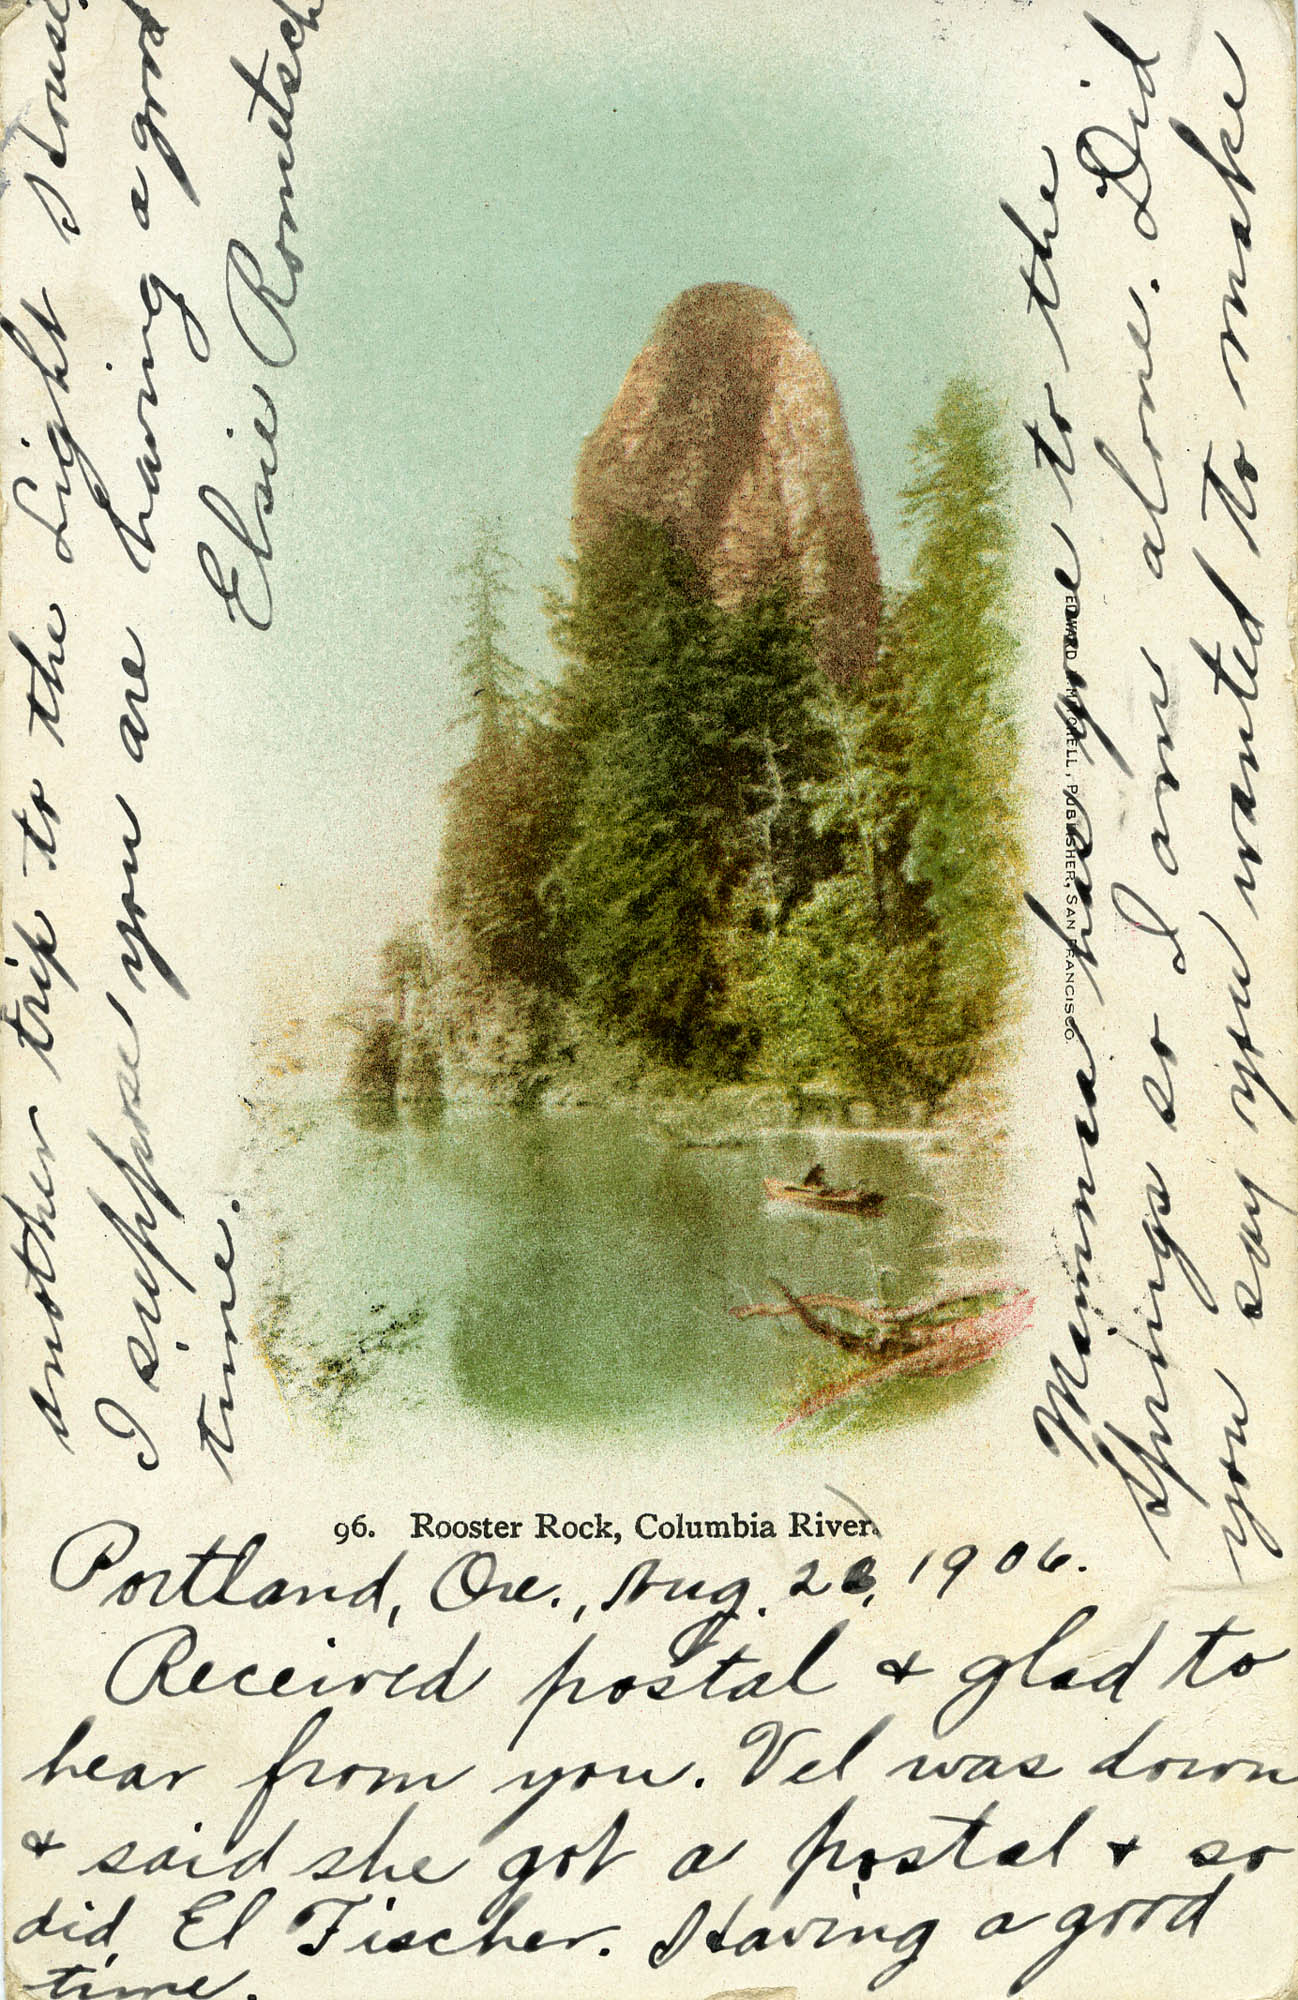 96. Rooster Rock, Columbia River.
EDWARD H. MITCHELL, PUBLISHER, SAN FRANCISCO.
Portland, Ore., Aug. 28, 1906.
Received postal & glad to
hear from you. Vel was down
& said she got a postal & so
did El Fischer. Having a good
time.
Mamma has gone to the
Springs so I am alone. Did
you say you wanted to make
another trip to the Light House.
I suppose you are having a good
time.
Elsie Rometsch